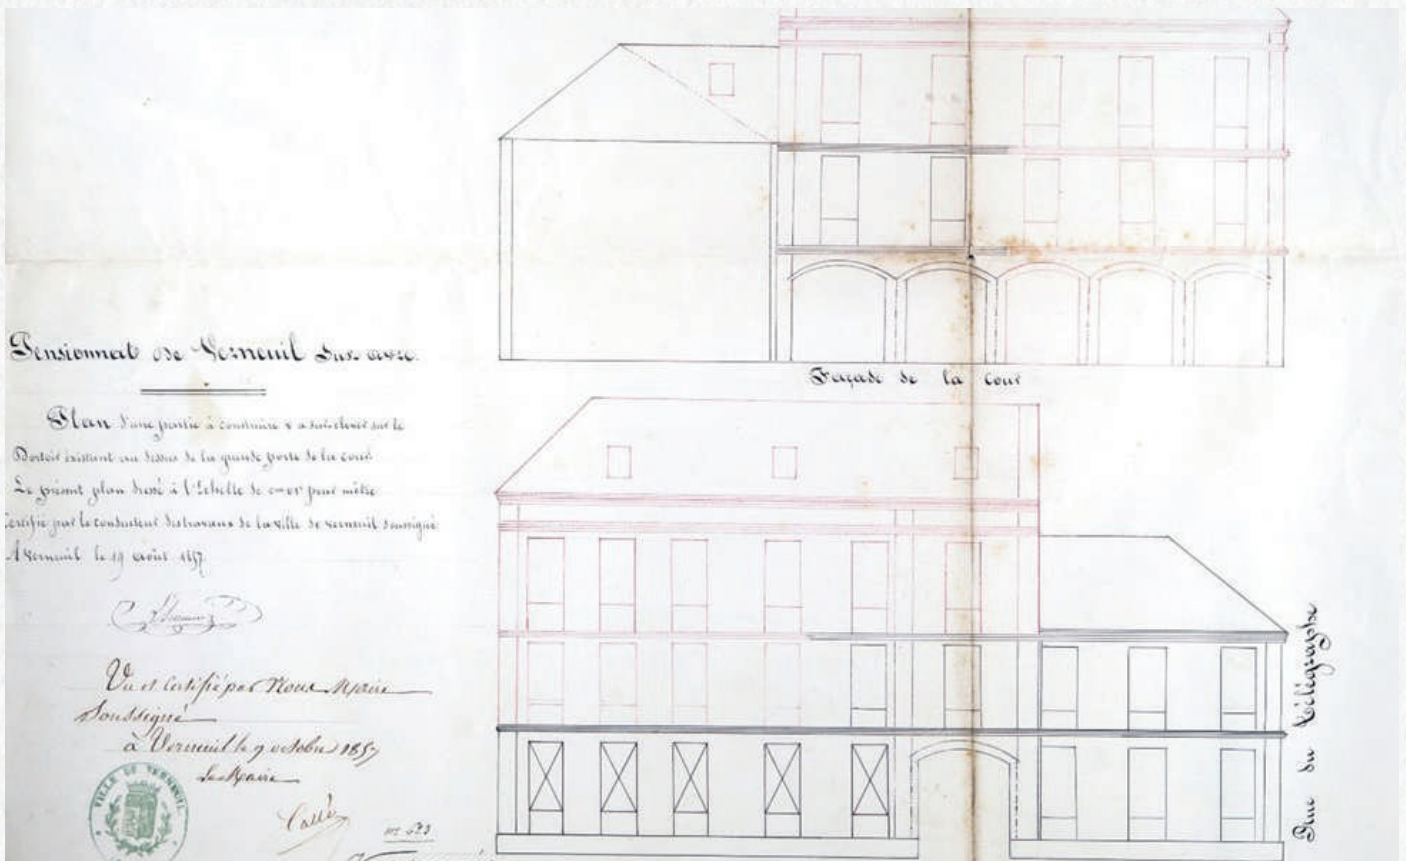 Pensionnat de Verneuil sur avre.
Plan d'une partie à construire & a surelever sur le
Dortoir existant au dessus de la grande porte de la cour
Le présent plan dressé à l'Echelle de pour mètre
Certifié par le conducteur des travaux de la ville de verneuil soussigné
A Verneuil le 19 août 1857
Vu et Certifié par Nous Maire
Soussigné
à Verneuil le 9 octobre 1857
Le Maire
VILLE DE VERNEUIL
Façade de la cour
Rue du Télégraphe